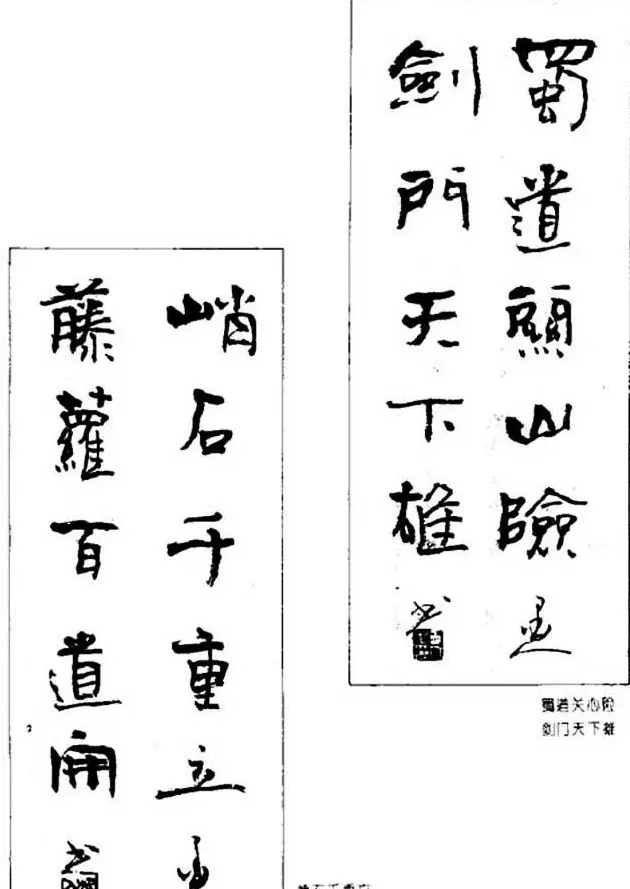 蜀道關山險
劍門天下雄
蜀道关心险
剑门天下雄
峭石千重立
藤蘿百道開